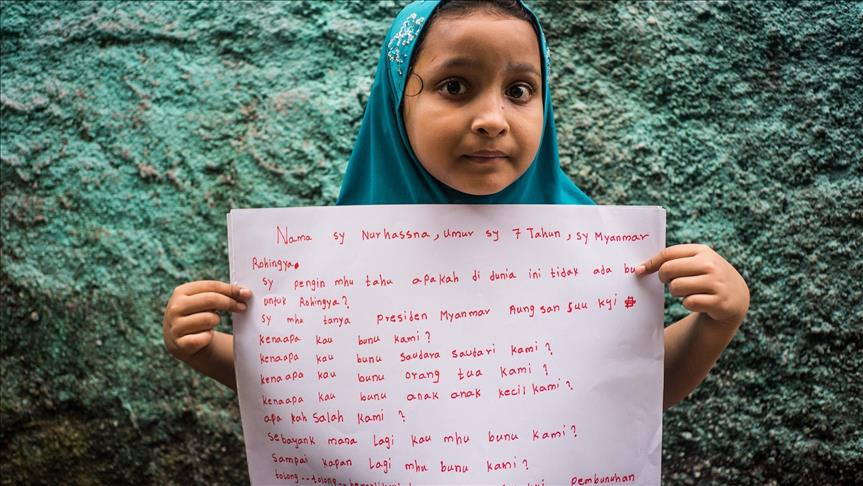 Nama sy Nurhassna, Umur sy 7 Tahun, sy Myanmar
Rohingya.
sy pengin mhu tahu apakah di dunia ini tidak ada bu
untuk Rohingya?
sy mhu tanya Presiden Myanmar Aung san suu kyi #
kenaapa kau bunu kami?
kenaapa kau bunu saudara sautari kami?
kenaapa kau bunu orang tua kami?
kenaapa kau bunu anak anak kecil kami?
apa kah salah kami?
sebayank mana lagi kau mhu bunu kami?
Sampai kapan lagi mhu bunu kami?
tolong..tolong.. Pembunuhan